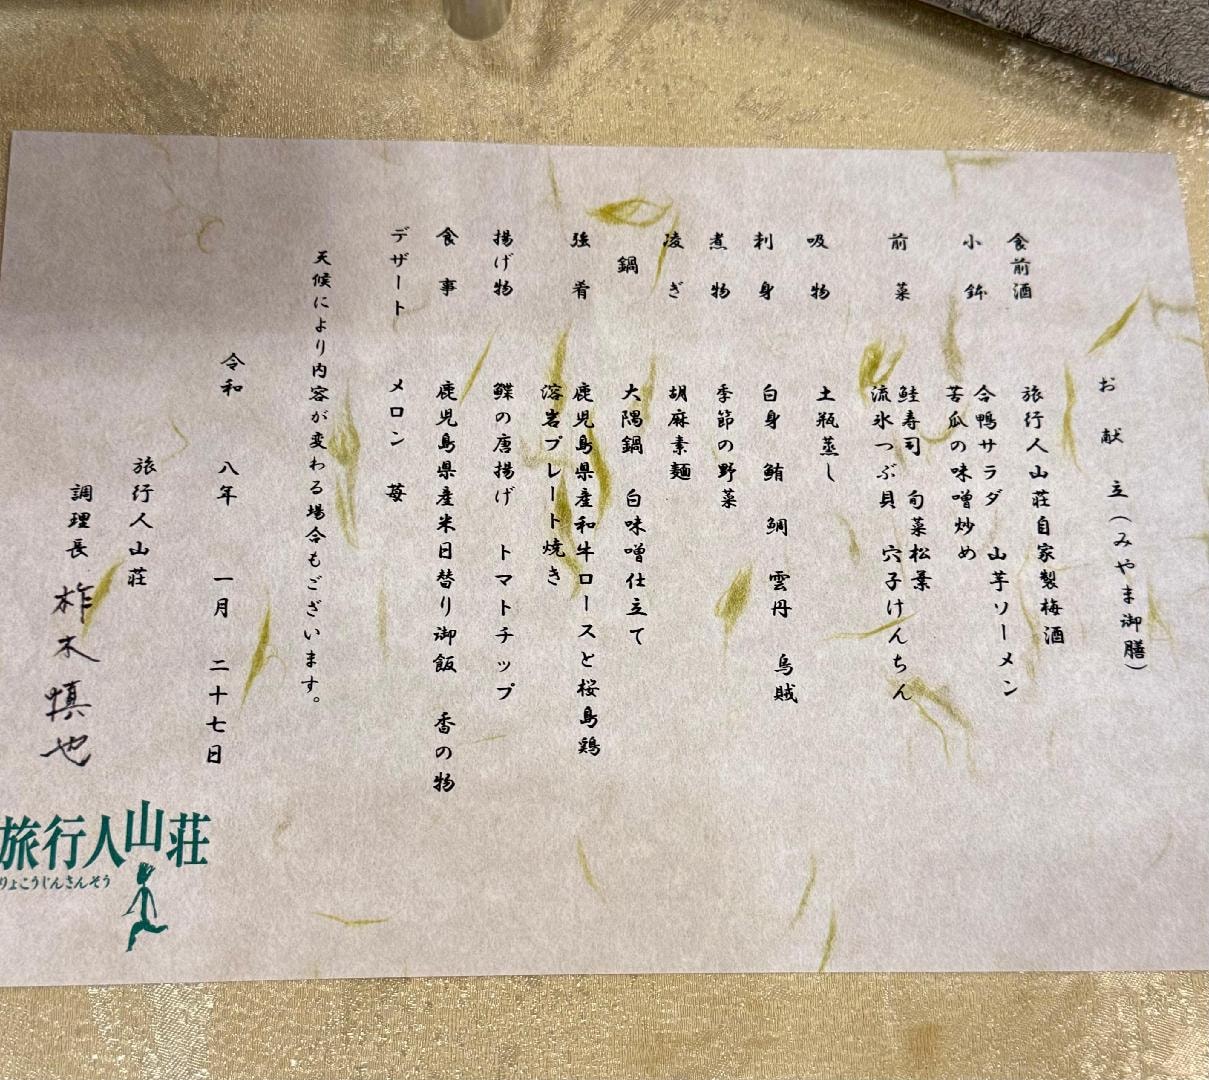 お献立(みやま御膳)
食前酒 旅行人山荘自家製梅酒
小鉢 合鴨サラダ 山芋ソーメン
苦瓜の味噌炒め
前菜 鮭寿司 旬菜松葉
流氷つぶ貝 穴子けんちん
吸物 土瓶蒸し
刺身 白身 鮪 鯛 雲丹 烏賊
煮物 季節の野菜
凌ぎ 胡麻素麺
鍋 大隅鍋 白味噌仕立て
強肴 鹿児島県産和牛ロースと桜島鶏
溶岩プレート焼き
揚げ物 鰈の唐揚げ トマトチップ
食事 鹿児島県産米日替り御飯 香の物
デザート メロン 苺
天候により内容が変わる場合もございます。
令和 八年 一月 二十七日
旅行人山荘
調理長 柞木慎也
旅行人山荘
りょこうじんさんそう